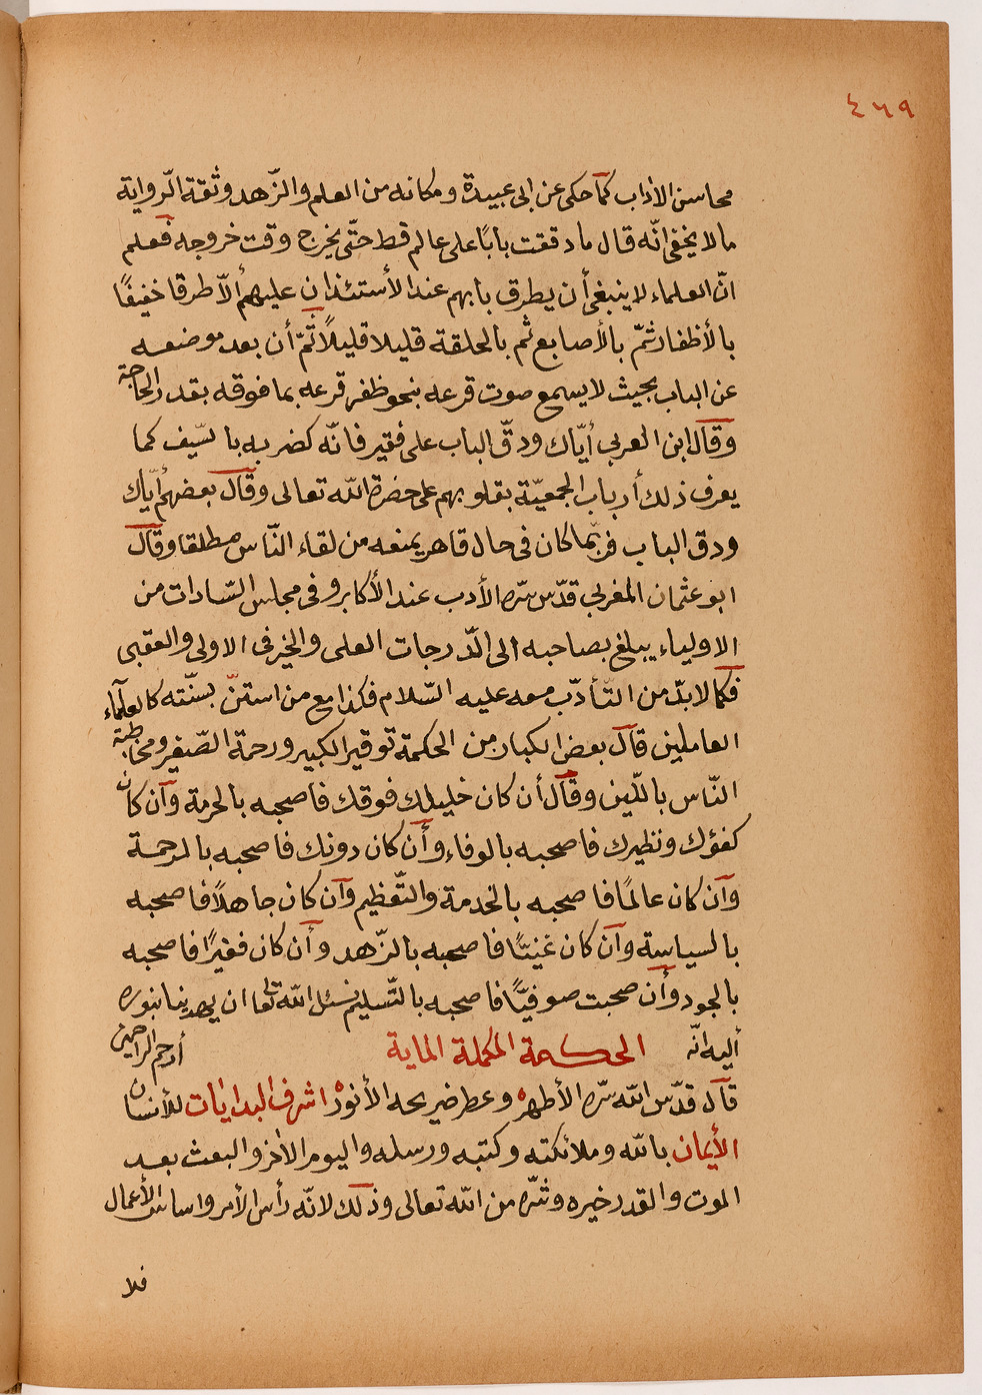 ٤٦٩
محاسن الأداب كما حكى عن ابى عبيدة ومكانه من العلم والزّهد وثقة الرّواية
ما لا يخفى انّه قال ما دققت بابًا على عالم قط حتّى يخرج وقت خروجه فعلم
انّ العلماء لا ينبغى أن يطرق بابهم عند الأستئذان عليهم ألاّ طرقا خفيفًا
بالأظفار ثمّ بالأصابع ثم بالحلقة قليلا قليلاً ثمّ أن بعد موضعه
عن الباب بحيث لا يسمع صوت قرعه بنحو ظفر قرعه بما فوقه بقدر الحاجة
وقال ابن العربي أيّاك ودقّ الباب على فقير فانّه كضربه بالسّيف كما
يعرف ذلك أرباب الجمعيّة بقلوبهم على حضرة الله تعالى وقال بعضهم أيّاك
ودق الباب فربّما كان فى حال قاهر يمنعه من لقاء النّاس مطلقا وقال
ابو عثمان المغربي قدّس سّره الأدب عند الأكابر وفى مجلس السّادات من
الاولياء يبلغ بصاحبه الى الدّرجات العلى والخير فى الاولى والعقبى
فكما لابدّ من التّأدّب معه عليه السّلام فكذا مع من استنّ بسنّته كالعلماء
العاملين قال بعض الكبار من الحكمة توقير الكبير ورحمة الصّغير ومخاطبة
النّاس باللّين وقال أن كان خليلك فوقك فاصحبه بالحرمة وآن كان
كفؤك ونظيرك فاصحبه بالوفاء وأن كان دونك فاصحبه بالرحمة
وآن كان عالمًا فاصحبه بالخدمة والتّعظيم وآن كان جاهلاً فاصحبه
بالسياسة وآن كان غنيّا فاصحبه بالزّهد وأن كان فقيرًا فاصحبه
بالجود وأن صحبت صوفيّا فاصحبه بالتّسليم نسئل الله تعا ان يهدينا بنوره
أليه انّه الحكمة المكملة الماية أرحم الراحمين
قال قدّس الله سّره الأطهره وعطر ضريحه الأنوره اشرف البدايات للأنسان
الأيمان بالله وملائكته وكتبه ورسله واليوم الاخر والبعث بعد
الموت والقدر خيره وشّره من الله تعالى وذلك لانّه رأس الأمر واساس الأعمال
فلا